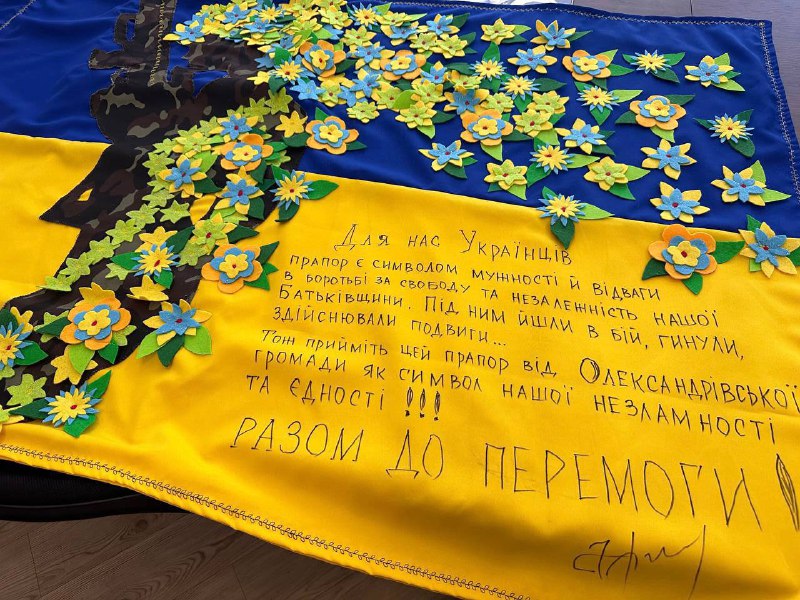 Для нас Українців
прапор є символом мужності й відваги
в боротьбі за свободу та незалежність нашої
Батьківщини. Під ним йшли в бій, гинули,
здійснювали подвиги...
Тож прийміть цей прапор від Олександрівської
громади як символ нашої незламності
та єдності !!!
РАЗОМ ДО ПЕРЕМОГИ !